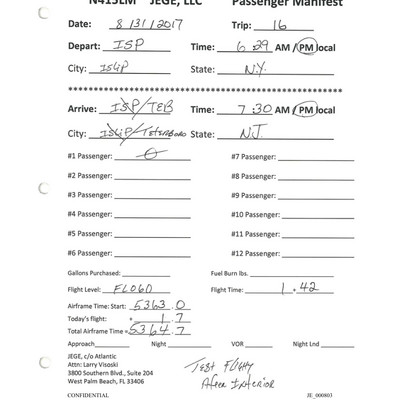 N415LM JEGE, LLC Passenger Manifest
Date: 8/31/2017 Trip: 16
Depart: ISP Time: 6:29 AM / PM local
City: ISLIP State: N.Y.
Arrive: ISP/TEB Time: 7:30 AM / PM local
City: ISLIP/TETERBORO State: N.J.
#1 Passenger: 0 #7 Passenger:
#2 Passenger: #8 Passenger:
#3 Passenger: #9 Passenger:
#4 Passenger: #10 Passenger:
#5 Passenger: #11 Passenger:
#6 Passenger: #12 Passenger:
Gallons Purchased: Fuel Burn lbs.
Flight Level: FL060 Flight Time: 1.42
Airframe Time: Start: 5363.0
Today's flight: + 1.7
Total Airframe Time = 5364.7
Approach Night VOR Night Lnd
JEGE, c/o Atlantic
Attn: Larry Visoski
3800 Southern Blvd., Site 204
West Palm Beach, FL 33406
Test Flight
After Interior
CONFIDENTIAL JE_000803